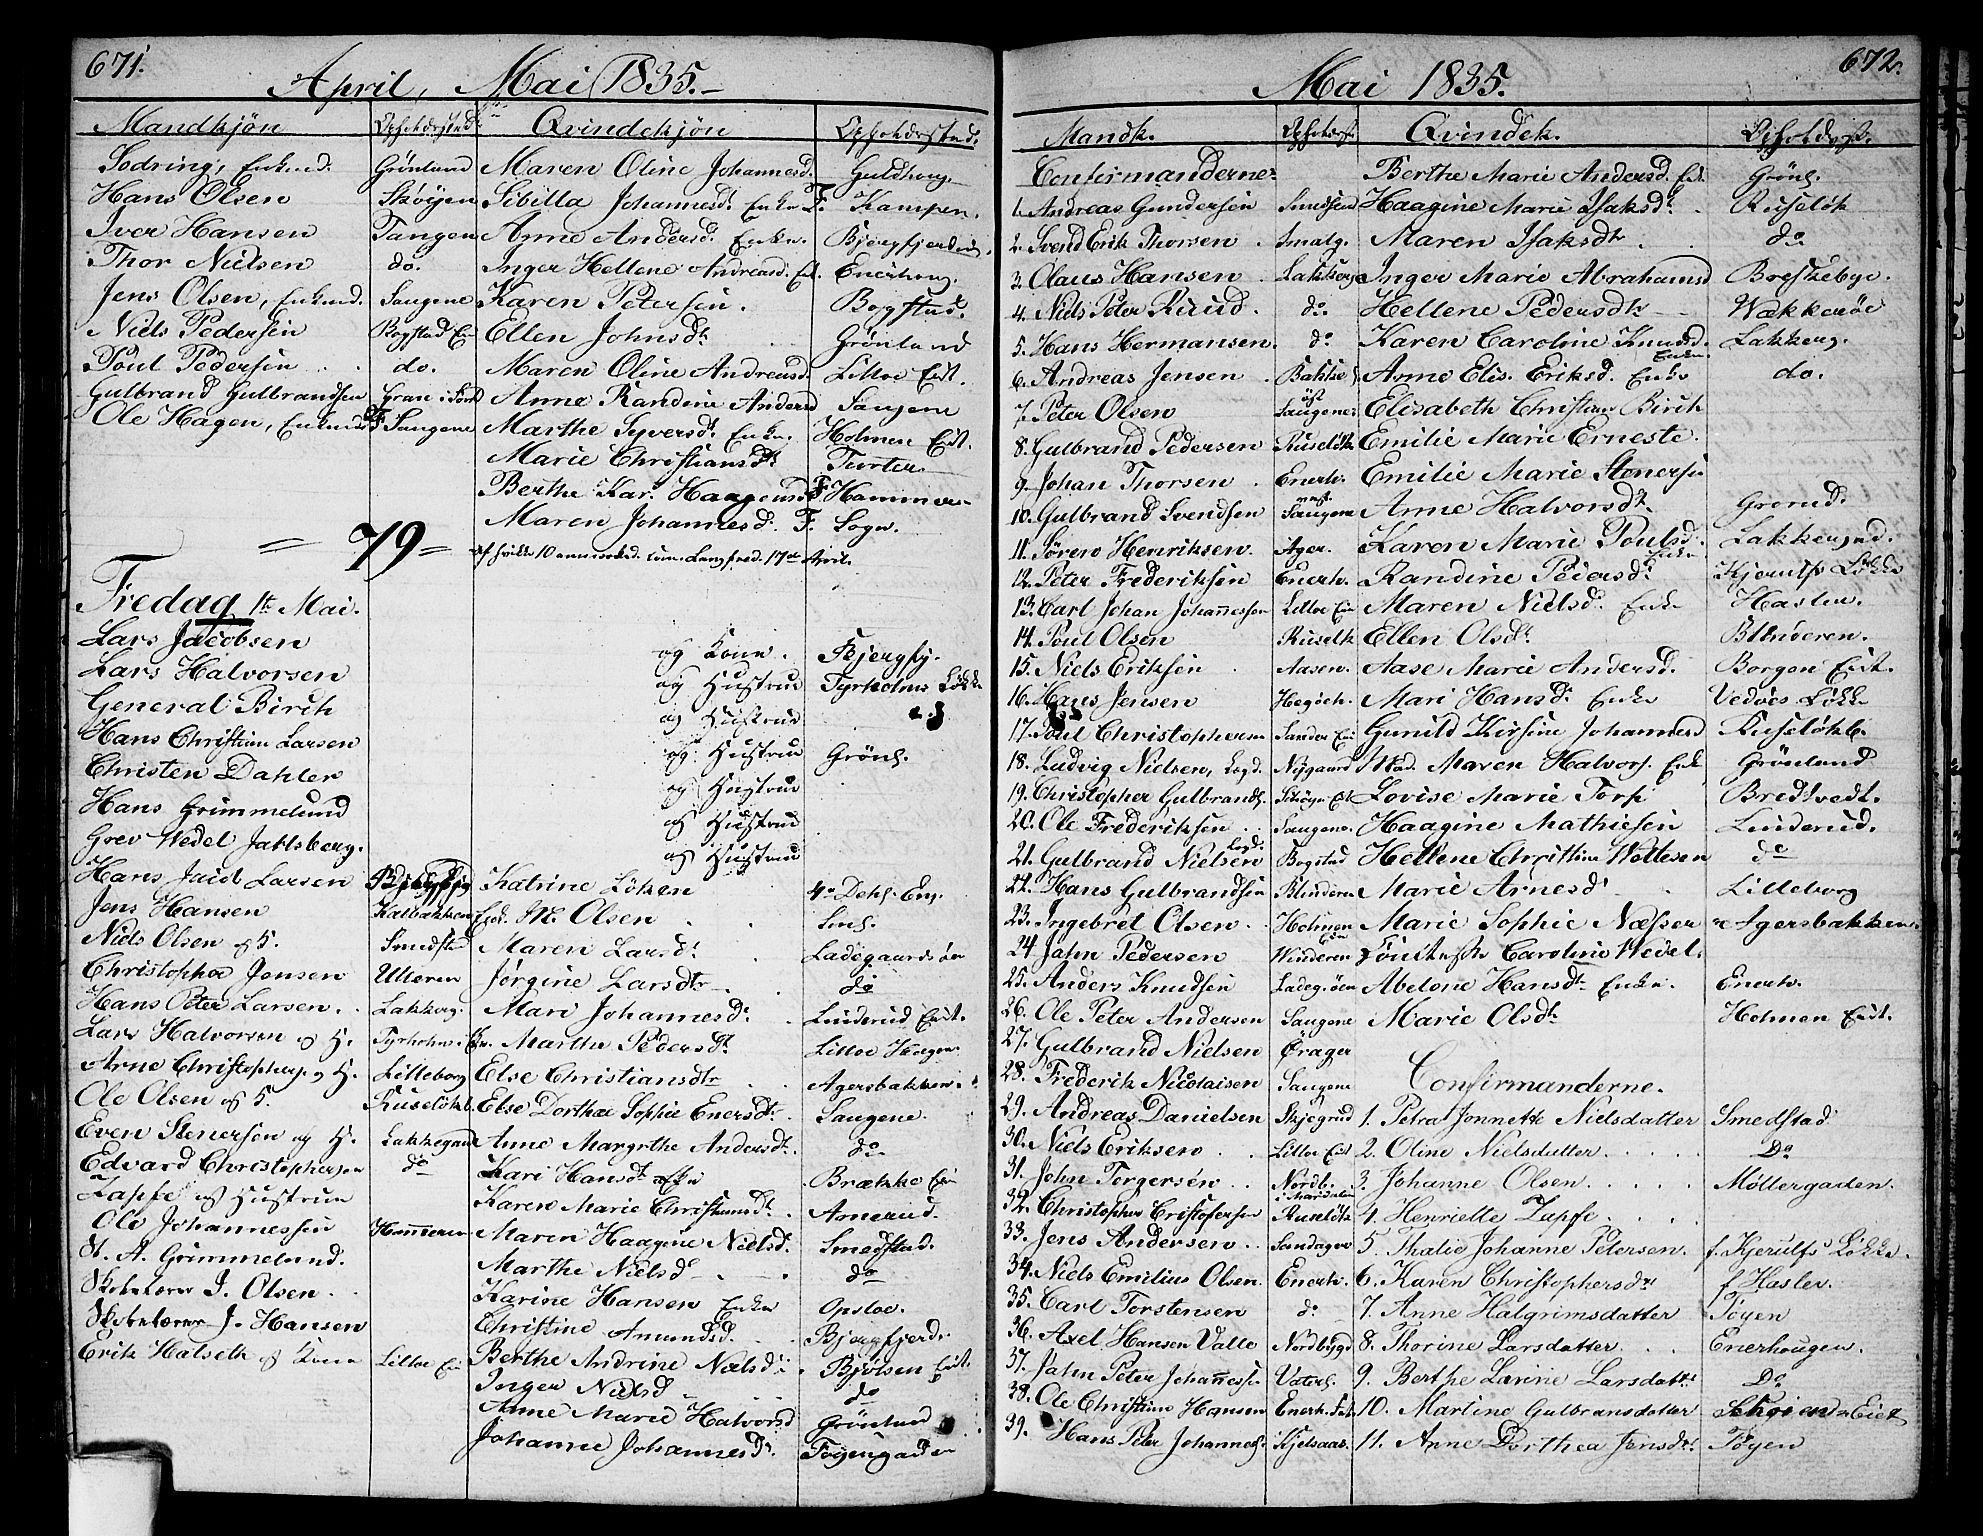 671.
April, Mai 1835.
Mandkjøn Opholdsstad. Qvindekjøn Opholdsstad.
Sodring, Enkmd. Grønland Maren Oline Johannesd.
Hans Olsen Skøyen Sibilla Johannesd. Enke F. Kampen.
Iver Hansen Tangen Anne Andersd. Enke.
Thor Nielsen do. Inger Hellene Andreasd. Enerhoug.
Jens Olsen, Enkmd. Saugene Karen Petersen. Bogstad.
Niels Pedersen Bogstad Ei Ellen Johnsdt. Grønland
Poul Pedersen do. Maren Oline Andreasd. Lilloe Eit.
Gulbrand Gulbrandsen Gran i Anne Randine Andersd Saugene
Ole Hagen, Saugene Marthe Syversdt. Enke. Holmen Eit.
Marie Christiansdt Turter
Berthe Kar. Haagensd F. Hammer
Maren Johannesd. F. Sogn.
= 79 = Langfred. 17de April.
Fredag 1te Mai.
Lars Jacobsen og Kone. Bjergfj.
Lars Halvorsen og Hustrue Tyrholms Løkke
General Birch og Hustrue
Hans Christian Larsen og Hustrue Grønl.
Christen Dahler og Hustrue
Hans Grimmelund og Hustrue
Grev Wedel Jahlsberg. og Hustrue
Hans Larsen Katrine Løken
Jens Hansen Kalbakken M. Olsen
Niels Olsen og S. Smedsta Maren Larsdt. Ladegaardsøen
Christopher Jensen Ulleren Jørgine Larsdtr do
Hans Peter Larsen. Lakkeg. Mari Johannesdt. Linderud Eit.
Lars Halvorsen og H. Tyrholms. Marthe Pedersdt. Lilloe Hagen
Arne Christophers. og H. Lilleborg Else Christiansdtr Agersbakken.
Ole Olsen og S. Ruseløkb. Else Dorthea Sophie Enersdt. Saugene.
Even Stenersen og H. Lakkegad Anne Margrthe Andersdt. do
Edvard Christophersen do Kari Hansdt Brække Ei
Zapfe og Hustrue Karen Marie Christiansdt.
Ole Johannessen Hammeren Maren Haagine Nielsd. Smedstad.
H. A. Grimmelund. Marthe Nielsd do
Skolelærer I. Olsen. Karine Hansen Enke Opsloe.
Skolelærer J. Hansen Christine Amundsd. Bjergfjerd.
Erik Halseth og Kone Lilloe Ei Berthe Andrine Nielsd. Bjølsen Eit.
Inger Nielsd do
Anne Marie Halvorsd Grønland
Johanne Johannesdt. Tøyengaden
672.
Mai 1835.
Mandk. Opholdsst. Qvindek. Opholdsst.
Confirmanderne: Berthe Marie Andersd. Grønl.
1. Andreas Gundersen Smedstad Haagine Marie Isaksdt. Ruseløk
2. Svend Erik Thorsen. Smalg. Maren Isaksdt. do.
3. Olaus Hansen. Lakkeg. Inger Marie Abrahamsd Breskebye.
4. Niels Peter Ruud. do. Hellene Pedersdtr Wækkerøe
5. Hans Hermansen. do Karen Caroline Knudsd. Enke Lakkeg.
6. Andreas Jensen Bakke Anne Elis. Eriksd. Enke do.
7. Peter Olsen øst Saugene Elisabeth Christiane Birch
8. Gulbrand Pedersen Ruseløk Emilie Marie Erneste.
9. Johan Thorsen. Enerh. Emilie Marie Stenersen
10. Gulbrand Svendsen vest Saugene Anne Halvorsdt. Grorud.
11. Søren Henriksen. Ager. Karen Marie Poulsd. Enke Lakkegad.
12. Peter Frederiksen Enerh. Randine Pedersdt. Kjerulfs Løkke
13. Carl Johan Johannessen Lilloe Ei Maren Nielsd. Enke Haslen.
14. Poul Olsen Ruseløk Ellen Olsdt. Blinderen.
15. Niels Eriksen Aasen. Aase Marie Andersd. Borgen Eit.
16. Hans Jensen Hegdeh. Mari Hansd. Enke Vedøes Løkke
17. Poul Christophersen Sander Ei Gunild Kirsine Johannesd Ruseløkb.
18. Ludvig Nielsen, Logd. Nygaard Mad. Maren Halvors. Enke Grønland
19. Christopher Gulbrands. Schøyn Eit Lovise Marie Torp Bredtvedt.
20. Ole Frederiksen Saugene. Haagine Mathiesen Linderud.
21. Gulbrand Nielsen Logd. Bogstad Hellene Christine Woltesen do
22. Hans Gulbrandsen Blinderen Marie Arnesdt Lilleborg
23. Ingebret Olsen. Holmen Eie Marie Sophie Næsser Agersbakken.
24 Jahn Pedersen Winderen Caroline Wedel.
25. Anders Knudsen Ladeg.øen Abelone Hansdt. Enke. Enerh.
26. Ole Peter Andersen Saugene Marie Olsdtr Holmen Eit.
27. Gulbrand Nielsen Ørager
28. Frederik Nicolaisen Saugene Confirmanderne.
29. Andreas Danielsen Skjegrud 1. Petra Jonnette Nielsdatter Smedstad
30. Niels Eriksen. Lilloe Eit 2. Oline Nielsdatter. Do
31. John Torgersen. Nordb. i Maridalen 3. Johanne Olsen. Møllergaden.
32. Christopher Cristofersen Ruseløk 4. Henriette Zapfe
33. Jens Andersen. Sandager 5. Thalie Johanne Petersen. f. Kjerulfs Løkke.
34. Niels Emilius Olsen. Enerh. 6. Karen Christophersdtr f. Hasler.
35. Carl Torstensen do 7. Anne Halgrimsdatter Tøyen
36. Axel Hansen Valle Nordbygd 8. Thorine Larsdatter. Enerhougen.
37. Jahn Peter Johannessen Vaterl. 9. Berthe Lavine Larsdattr Do
38. Ole Christian Hansen Enerh. 10. Martine Gulbransdatter Schøien Eiet
39. Hans Peter Johannes. Kjelsaas. 11. Anne Dorthea Jensdtr Tøyen